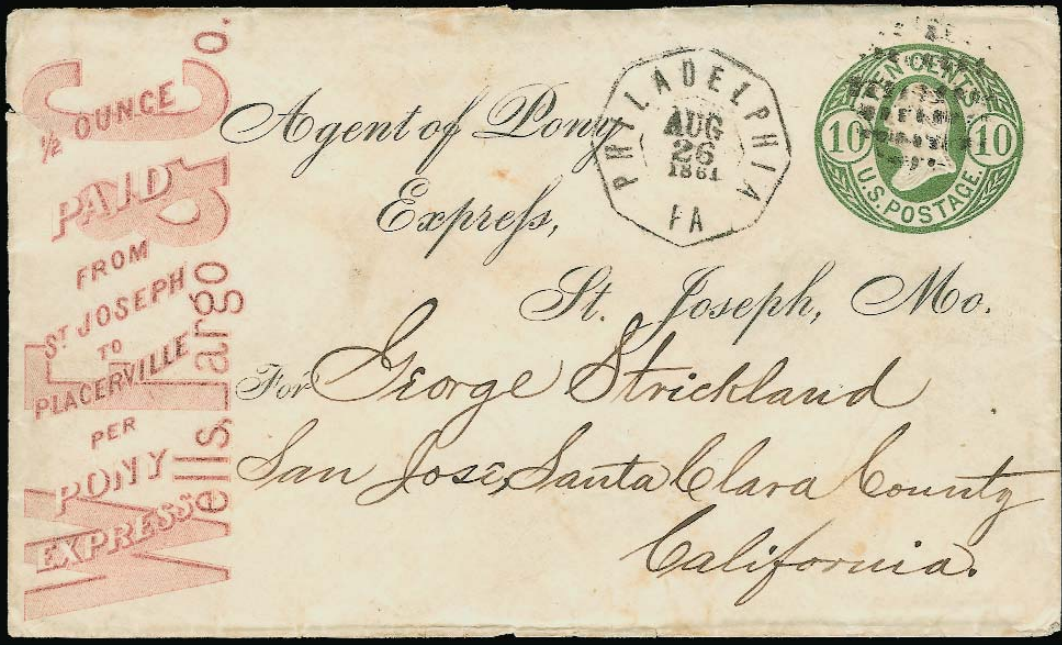 Wells, Fargo & Co.
½ OUNCE
PAID
FROM
ST JOSEPH
TO
PLACERVILLE
PER
PONY
EXPRESS
PHILADELPHIA
AUG
26
1861
PA
TEN CENTS
10 10
U.S. POSTAGE.
Agent of Pony
Express,
St. Joseph, Mo.
For George Strickland
San José, Santa Clara County
California.